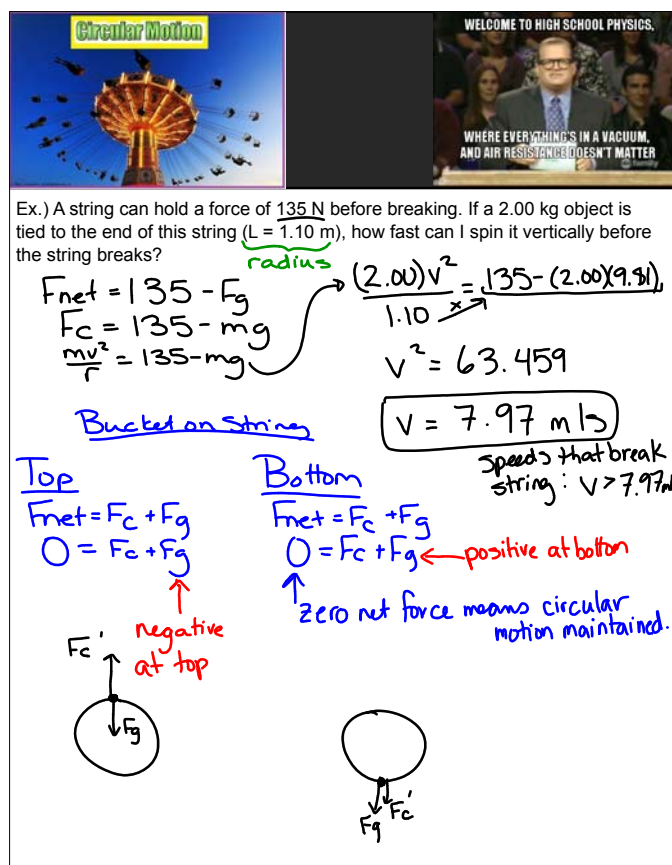 Circular Motion
WELCOME TO HIGH SCHOOL PHYSICS,
WHERE EVERYTHING'S IN A VACUUM,
AND AIR RESISTANCE DOESN'T MATTER
family
Ex.) A string can hold a force of 135 N before breaking. If a 2.00 kg object is
tied to the end of this string (L = 1.10 m), how fast can I spin it vertically before
the string breaks?
radius
Fnet = 135 - Fg
Fc = 135 - mg
mv²/r = 135 - mg
(2.00)v²/1.10 = 135 - (2.00)(9.81)
x
v² = 63.459
v = 7.97 m/s
speeds that break
string: v > 7.97m
Bucket on String
Top
Fnet = Fc + Fg
0 = Fc + Fg
negative
at top
Fc'
Fg
Bottom
Fnet = Fc + Fg
0 = Fc + Fg ← positive at bottom
zero net force means circular
motion maintained.
Fg Fc'